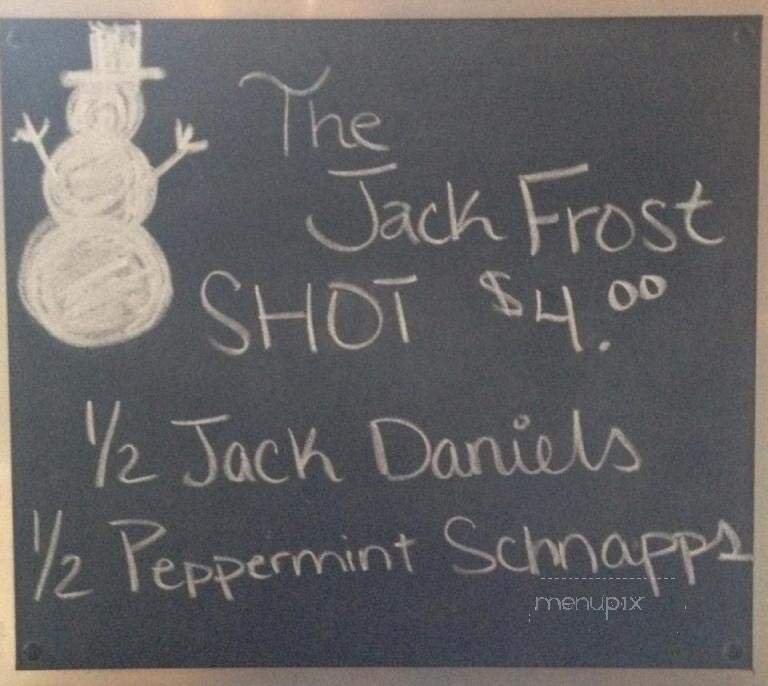 The
Jack Frost
SHOT $4.00
1/2 Jack Daniels
1/2 Peppermint Schnapps
menupix